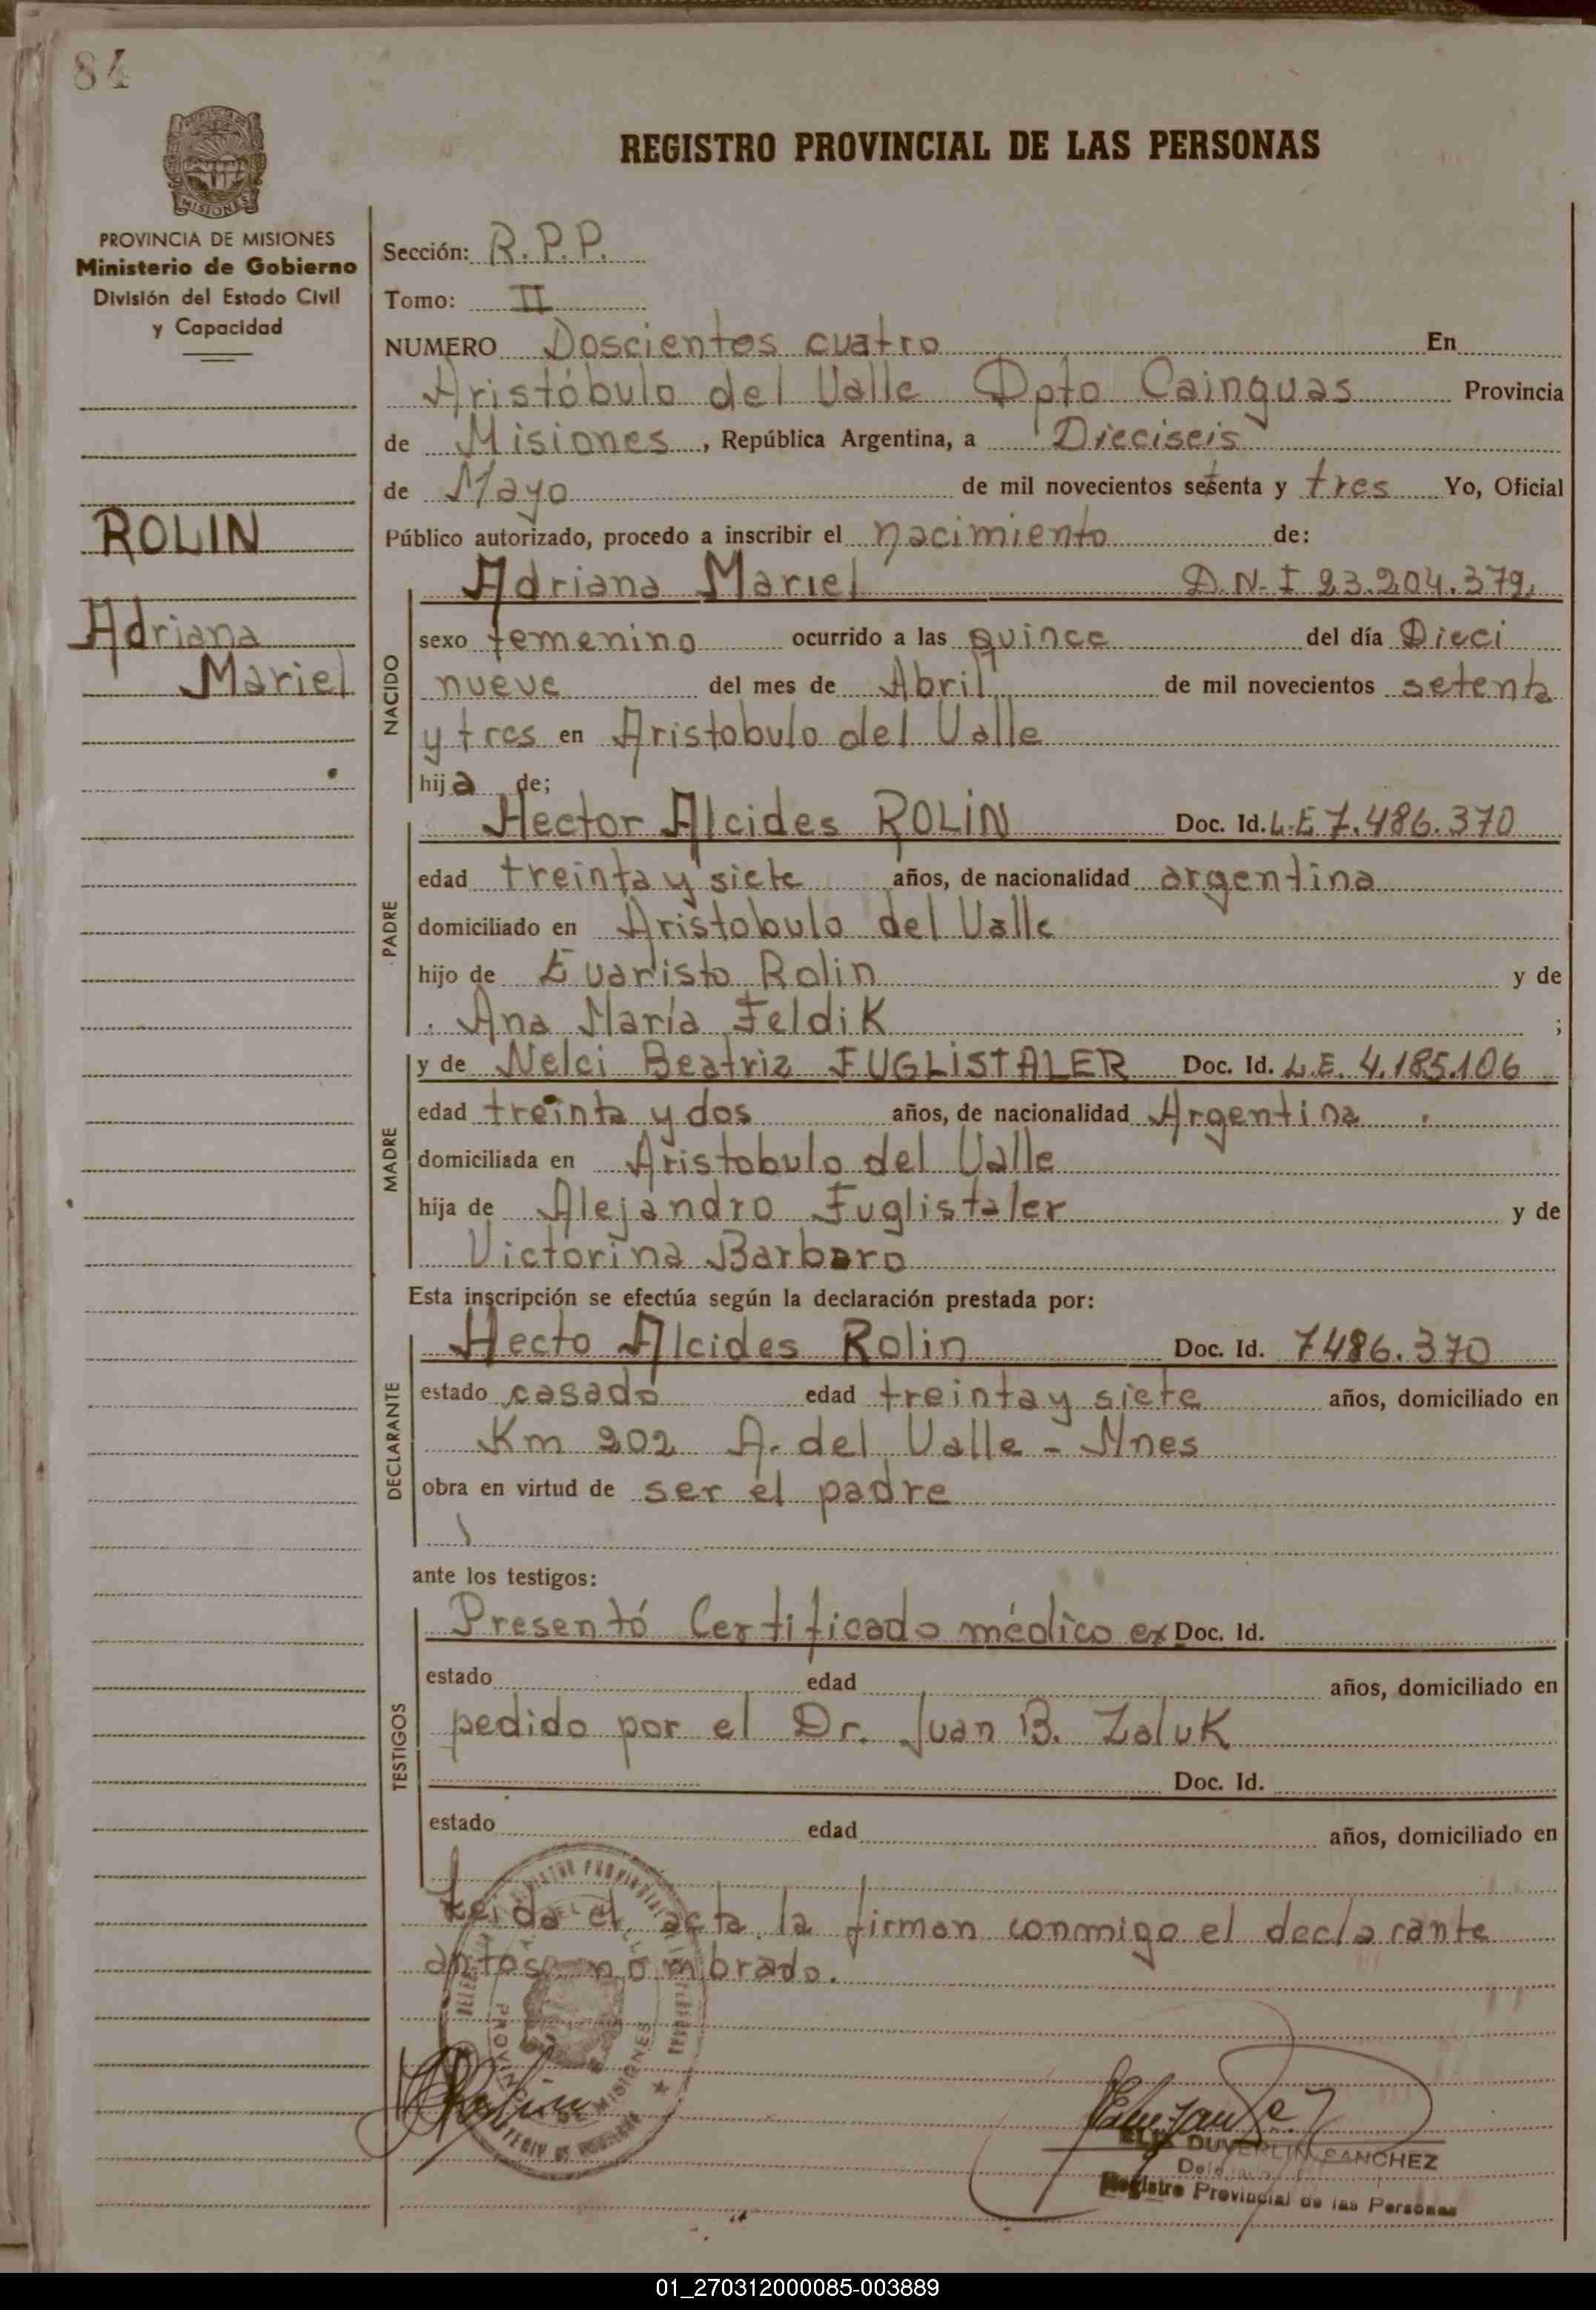 84
REGISTRO PROVINCIAL DE LAS PERSONAS
MISIONES
PROVINCIA DE MISIONES
Ministerio de Gobierno
División del Estado Civil
y Capacidad
ROLIN
Adriana
Mariel
Sección: R.P.P.
Tomo: II
NUMERO Doscientos cuatro En
Aristóbulo del Valle Dpto Cainguas Provincia
de Misiones, República Argentina, a Dieciseis
de Mayo de mil novecientos setenta y tres Yo, Oficial
Público autorizado, procedo a inscribir el nacimiento de:
Adriana Mariel D.N.I 23.204.379
NACIDO
sexo femenino ocurrido a las quince del día Dieci
nueve del mes de Abril de mil novecientos setenta
y tres en Aristobulo del Valle
hija de;
PADRE
Hector Alcides ROLIN Doc. Id. L.E 7.486.370
edad treinta y siete años, de nacionalidad argentina
domiciliado en Aristobulo del Valle
hijo de Evaristo Rolin y de
Ana María Feldik ;
MADRE
y de Nelci Beatriz FUGLISTALER Doc. Id. L.E. 4.185.106
edad treinta y dos años, de nacionalidad Argentina
domiciliada en Aristobulo del Valle
hija de Alejandro Fuglistaler y de
Victorina Barbaro
Esta inscripción se efectúa según la declaración prestada por:
DECLARANTE
Hecto Alcides Rolin Doc. Id. 7486.370
estado casado edad treinta y siete años, domiciliado en
Km 202 A. del Valle - Mnes
obra en virtud de ser el padre
ante los testigos:
TESTIGOS
Presentó Certificado médico ex Doc. Id.
estado edad años, domiciliado en
pedido por el Dr. Juan B. Zaluk
Doc. Id.
estado edad años, domiciliado en
Leida el acta la firman conmigo el declarante
antos nombrado.
DUVERLIN SANCHEZ
Registro Provincial de las Personas
01_270312000085-003889